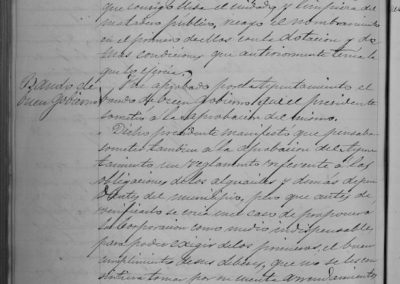 que consigo lleva el cuidado y limpieza del
matadero publico, recayo el nombramiento
en el primero de ellos con la dotacion y de
mas condiciones que anteriormente tenia la
que
Bando de
buen gobierno
Fué aprobado por el Ayuntamiento el
bando de buen gobierno que el presidente
sometió a la aprobacion del mismo.
Dicho presidente manifestó que pensaba
someter tambien a la aprobacion del Ayun
tamiento un reglamento referente a las
obligaciones de los alguaciles y demas depen
dientes del municipio, pero que antes de
verificarlo se veia en el caso de proponer a
la Corporacion como medio indispensable
para poder exigir de los primeros, el buen
cumplimiento de sus deberes, que no se les con
sintiera tomar por su cuenta arrendamientos